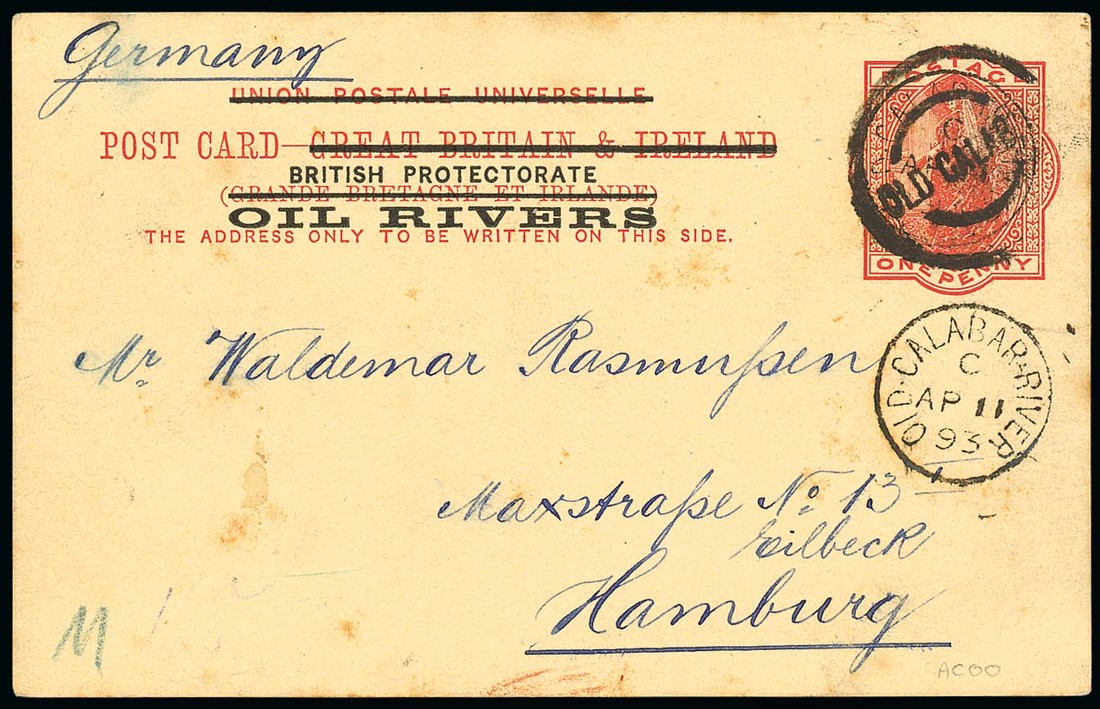 Germany
UNION POSTALE UNIVERSELLE
POST CARD—GREAT BRITAIN & IRELAND
BRITISH PROTECTORATE
(GRANDE BRETAGNE ET IRLANDE)
OIL RIVERS
THE ADDRESS ONLY TO BE WRITTEN ON THIS SIDE.
POSTAGE
OLD CALAB
ONE PENNY
OLD·CALABAR·RIVER
C
AP 11
93
Mr Waldemar Rasmußen
Maxstraße No 13
Eilbeck
Hamburg
M
ACOO